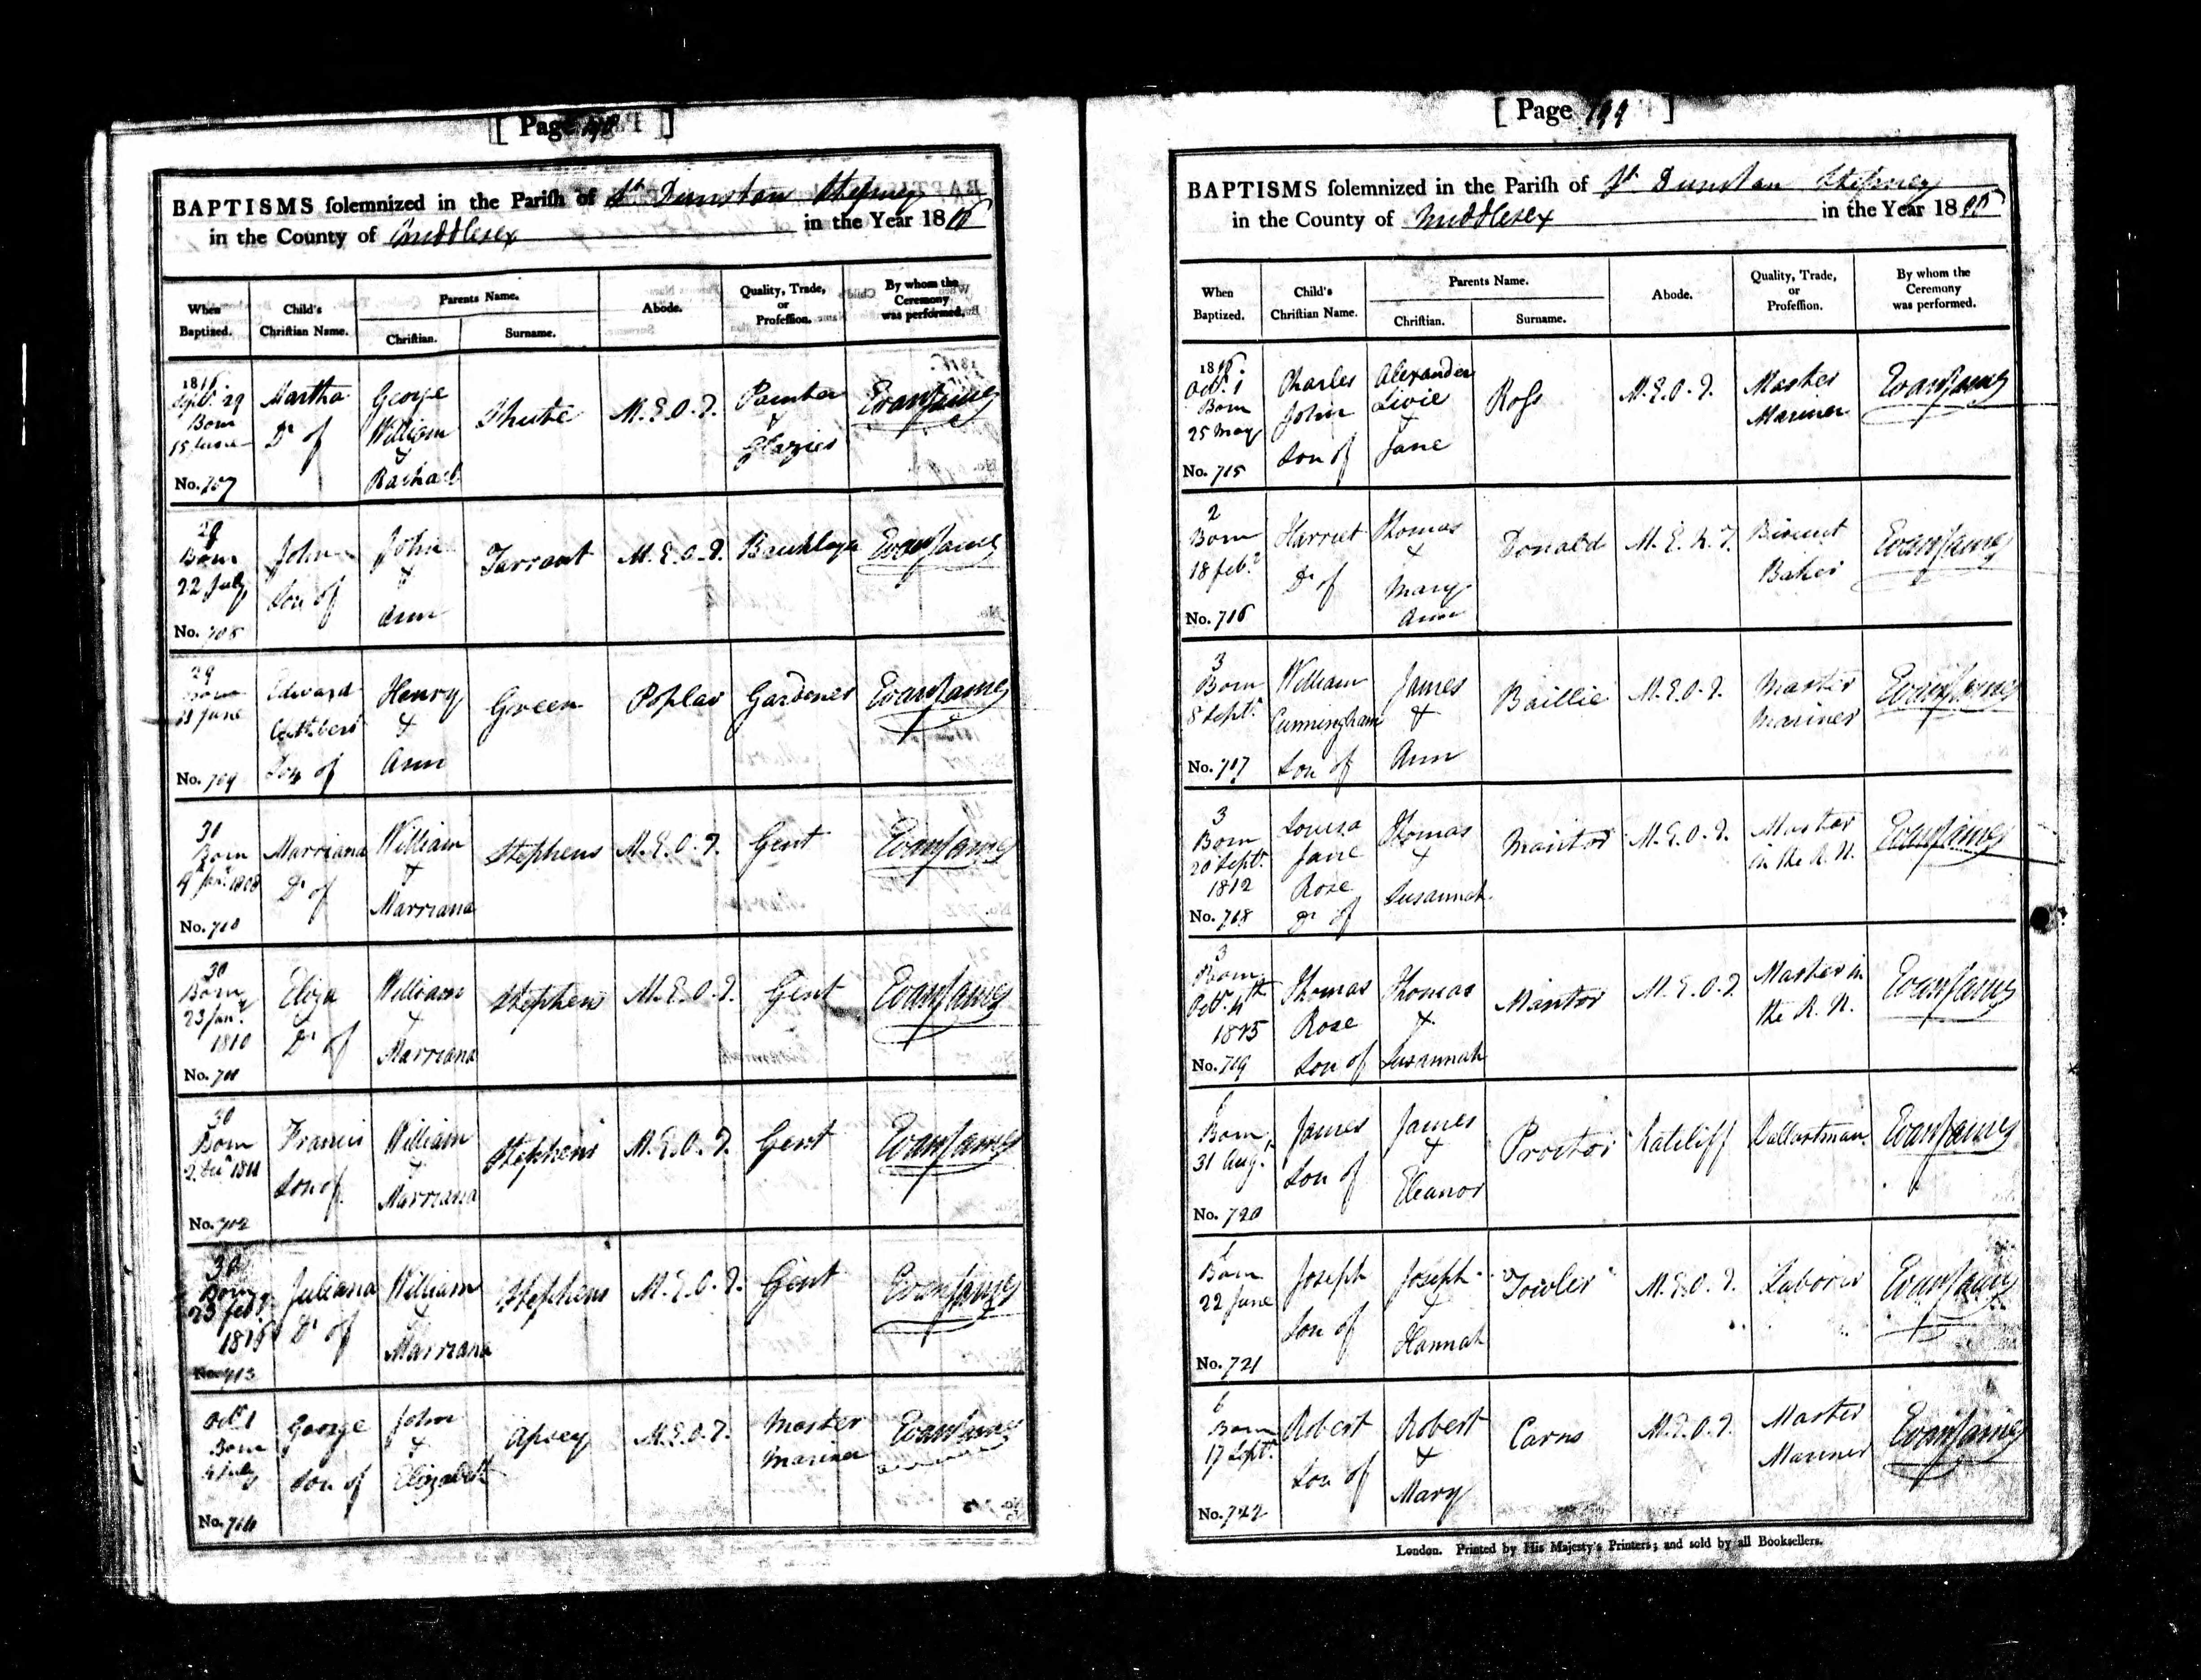 [ Page ]
BAPTISMS solemnized in the Parish of St Dunstan Stepney
in the County of Middlesex in the Year 1816
When Baptized.
Child's Christian Name.
Parents Name.
Christian.
Surname.
Abode.
Quality, Trade, or Profession.
By whom the Ceremony was performed.
1816
Sept. 29
Born
15 June
No. 707
Martha
Dr of
George
William
&
Rachael
Shute
M.E.O.T.
Painter
&
Glazier
Evan James
29
Born
22 July
No. 708
John
Son of
John
&
Ann
Tarrant
M.E.O.T.
Evan James
29
Born
June
No. 709
Edward
Cuthbert
Son of
Henry
&
Ann
Green
Poplar
Gardener
Evan James
30
Born
9 Jany. 1808
No. 710
Marriana
Dr of
William
&
Marriana
Stephens
M.E.O.T.
Gent
Evan James
30
Born
23 Jany.
1810
No. 711
Eliza
Dr of
William
&
Marriana
Stephens
M.E.O.T.
Gent
Evan James
30
Born
2 Decr 1811
No. 712
Francis
Son of
William
&
Marriana
Stephens
M.E.O.T.
Gent
Evan James
30
Born
23 feby.
1816
No. 713
Juliana
Dr of
William
&
Marriana
Stephens
M.E.O.T.
Gent
Evan James
Octr 1
Born
4 July
No. 714
George
Son of
John
&
Elizabeth
Apsey
M.E.O.T.
Master
Mariner
Evan James
[ Page 199 ]
BAPTISMS solemnized in the Parish of St Dunstan Stepney
in the County of Middlesex in the Year 1816
When Baptized.
Child's Christian Name.
Parents Name.
Christian.
Surname.
Abode.
Quality, Trade, or Profession.
By whom the Ceremony was performed.
1816.
Octr. 1
Born
25 May
No. 715
Charles
John
Son of
Alexander
Livie
&
Jane
Ross
M.E.O.T.
Master
Mariner
Evan James
2
Born
18 feby
No. 716
Harriet
Dr of
Thomas
&
Mary
Ann
Donald
M.E.N.T.
Biscuit
Baker
Evan James
3
Born
8 Septr.
No. 717
William
Cunningham
Son of
James
&
Ann
Baillie
M.E.O.T.
Master
Mariner
Evan James
3
Born
20 Septr.
1812
No. 718
Louisa
Jane
Rose
Dr of
Thomas
&
Susannah
Mantor
M.E.O.T.
Master
in the R.N.
Evan James
3
Born
Octr. 4th
1815
No. 719
Thomas
Rose
Son of
Thomas
&
Susannah
Mantor
M.E.O.T.
Master in
the R.N.
Evan James
6
Born
31 Aug.
No. 720
James
Son of
James
&
Eleanor
Proctor
Ratcliff
Ballastman
Evan James
6
Born
22 June
No. 721
Joseph
Son of
Joseph
&
Hannah
Towler
M.E.O.T.
Laborer
Evan James
6
Born
17 Septr.
No. 722
Robert
Son of
Robert
&
Mary
Carns
M.E.O.T.
Master
Mariner
Evan James
London. Printed by His Majesty's Printers; and sold by all Booksellers.